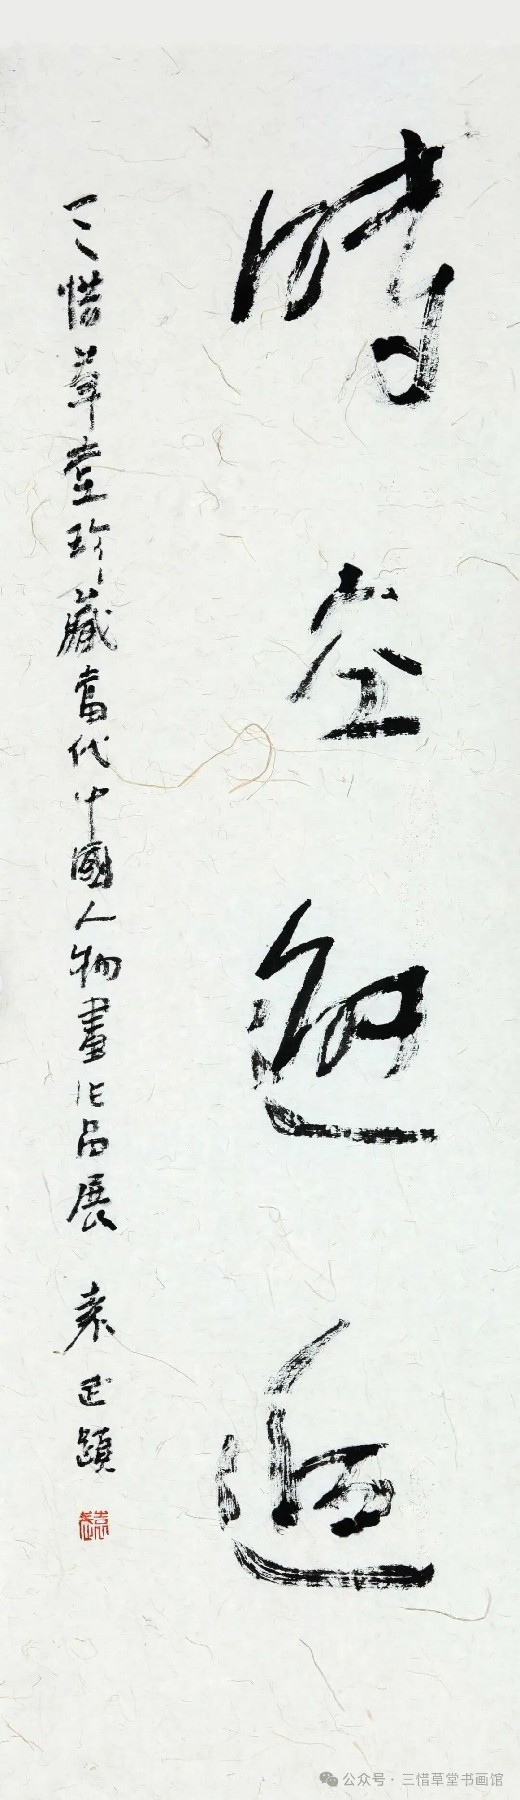 時空邂逅
三惜草堂珍藏當代中國人物畫作品展 袁武題
公众号 · 三惜草堂书画馆